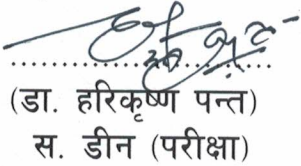 (डा. हरिकृष्ण पन्त)
स. डीन (परीक्षा)